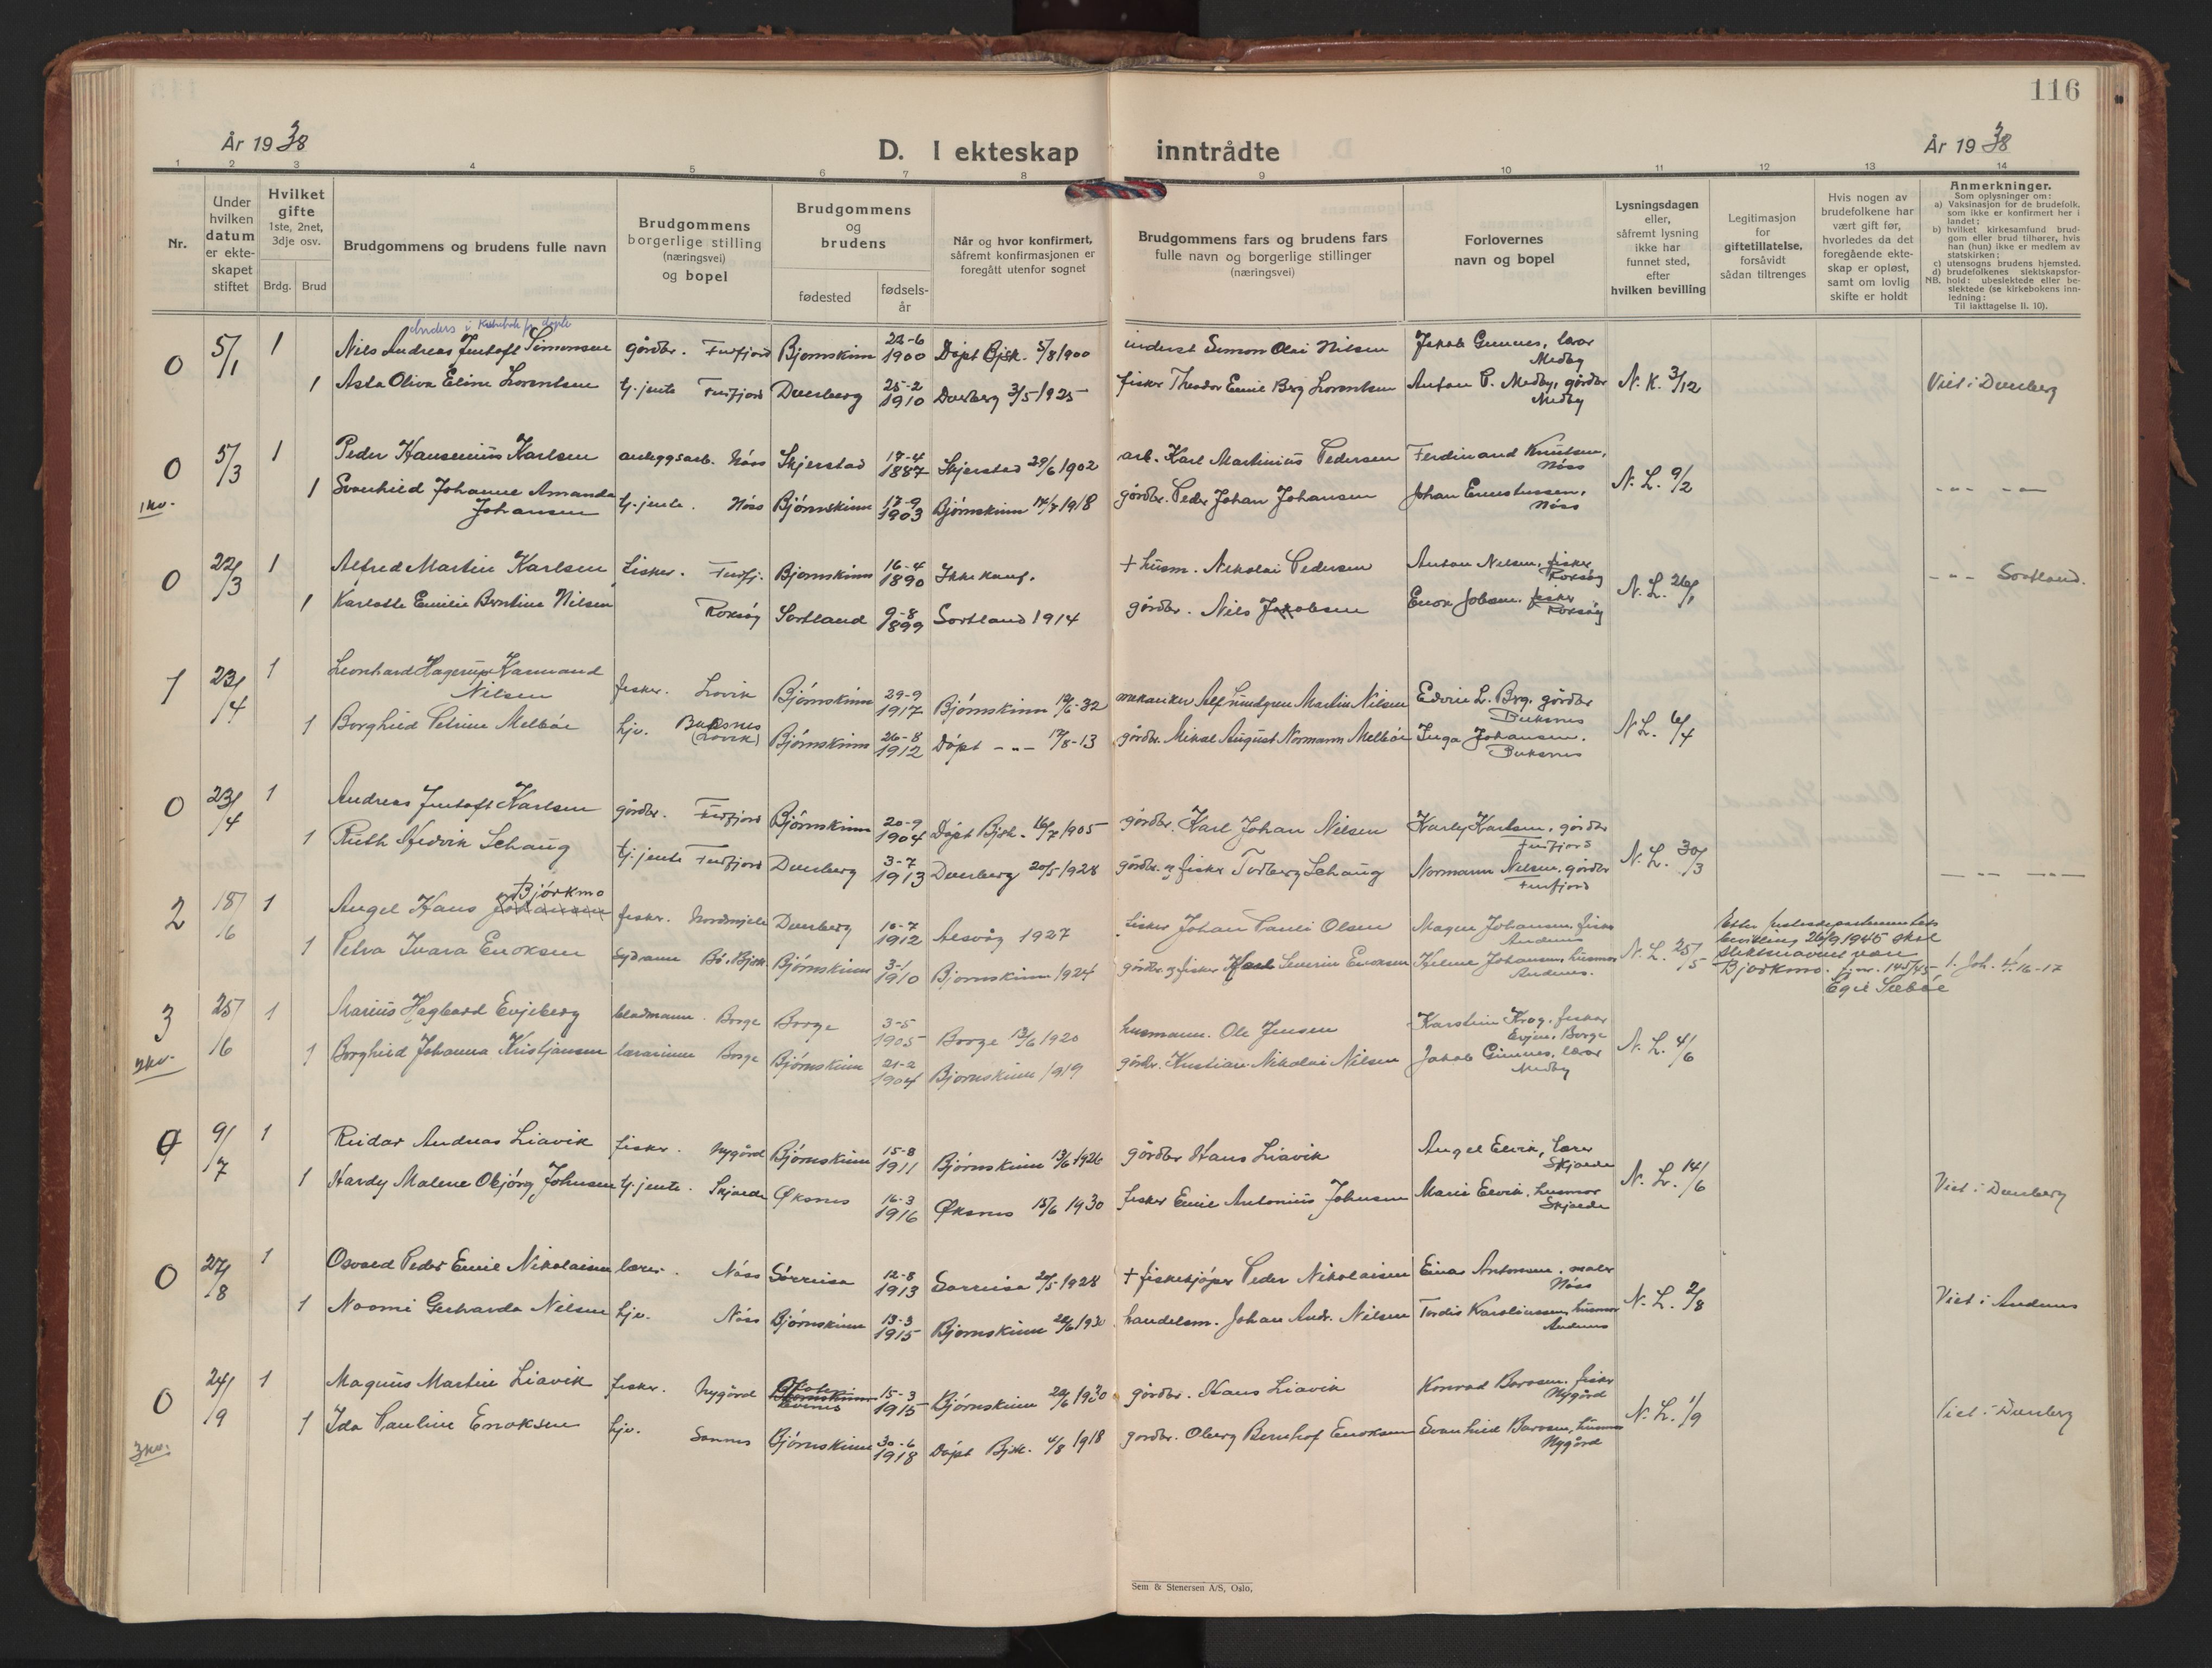 116
År 1938
D. I ekteskap inntrådte
År 1938
1 2 3 4 5 6 7 8 9 10 11 12 13 14
Nr.
Under hvilken datum er ekte-skapet stiftet
Hvilket gifte 1ste, 2net, 3dje osv.
Brdg. Brud
Brudgommens og brudens fulle navn
Brudgommens borgerlige stilling (næringsvei) og bopel
Brudgommens og brudens
fødested
fødsels-år
Når og hvor konfirmert, såfremt konfirmasjonen er foregått utenfor sognet
Brudgommens fars og brudens fars fulle navn og borgerlige stillinger (næringsvei)
Forlovernes navn og bopel
Lysningsdagen eller, såfremt lysning ikke har funnet sted, efter hvilken bevilling
Legitimasjon for giftetillatelse, forsåvidt sådan tiltrenges
Hvis nogen av brudefolkene har vært gift før, hvorledes da det foregående ekte-skap er opløst, samt om lovlig skifte er holdt
Anmerkninger.
Som oplysninger om:
a) Vaksinasjon for de brudefolk, som ikke er konfirmert her i landet;
b) hvilket kirkesamfund brud-gom eller brud tilhører, hvis han (hun) ikke er medlem av statskirken;
c) utensogns brudens hjemsted.
d) brudefolkenes slektskapsfor-hold: ubeslektede eller be-slektede (se kirkebokens inn-ledning:
NB. Til iakttagelse II. 10).
Anders i Kirkebok for døpte
0 5/1 1 Nils Andreas Jentoft Simonsen gårdbr. Furfjord Bjørnskinn 22-6 1900 Døpt Bjsk. 5/8 1900 inderst Simon Olai Nilsen Jakob Gimnes, lærer Medby
1 Asta Oliva Eline Lorentsen tj.jente Furfjord Dverberg 25-2 1910 Dverberg 3/5-1925 fisker Theodor Emil Berg Lorentsen Anton P. Medby, gårdbr Medby N. K. 3/12 Viet i Dverberg
0 5/3 1 Peder Hansenius Karlsen anleggsarb. Nöss Skjerstad 17-4 1887 Skjerstad 29/6 1902 arb. Karl Martinius Pedersen Ferdinand Knutsen, Nöss
1kv. 1 Svanhild Johanne Amanda Johansen tj.jente. Nöss Bjørnskinn 17-9 1903 Bjørnskinn 14/7 1918 gårdbr. Peder Johan Johansen Johan Ernstussen, Nöss N. L. 9/2 -"- -"-
0 22/3 1 Alfred Martin Karlsen Fisker. Furfj. Bjørnskinn 16-4 1890 Ikke konf. + husm. Nikolai Pedersen Anton Nilsen, fisker Roksöy
1 Karlotte Emilie Berntine Nilsen Roksöy Sortland 9-8 1899 Sortland 1914 gårdbr. Nils Jakobsen Enok Jobsen, fisker Roksöy N. L. 26/1 -"- Sortland.
1 23/4 1 Leonhard Hagerup Kannand Nilsen fisker. Lovik Bjørnskinn 29-9 1917 Bjørnskinn 19/6-32 mekaniker Alf Lundgren Martin Nilsen Edvin L. Berg, gårdbr Buksnes
1 Borghild Petrine Melbøe hjv. Buksnes (Lovik) Bjørnskinn 26-8 1912 Døpt -"- 17/8-13 gårdbr. Mikal August Normann Melbøe Inga Johansen, Buksnes N L. 6/4
0 23/4 1 Andreas Jentoft Karlsen gårdbr. Furfjord Bjørnskinn 20-9 1904 Døpt Bjsk. 16/7 1905 gårdbr. Karl Johan Nilsen Karly Karlsen, gårdbr Furfjord
1 Ruth Hedvik Schaug tj.jente Furfjord Dverberg 3-7 1913 Dverberg 20/5-1928 gårdbr. og fisker Torberg Schaug Normann Nilsen, gårdbr Furfjord N. L. 30/3 -"- -"-
2 18/6 1 Angel Hans Johansen Bjørkmo fisker. Nordmjele Dverberg 10-7 1912 Alsvåg 1927 Fisker Johan Pareli Olsen Magne Johansen, fisker Andenes
1 Petra Ivara Enoksen sydame Bö, Bjsk. Bjørnskinn 3-1 1910 Bjørnskinn 1924 gårdbr. og fisker Karl Severin Enoksen Helene Johansen, husmor Andenes. N. L. 25/5 Etter Justisdepartementets bevilling 26/9 1945 skal slektsnavnet være Bjørkmo. j.nr. 145/45 Egil Sæbøe 1. Joh. 4. 16-17
3 25/6 1 Marius Hagbard Evjeberg bladmann. Borge Borge 3-5 1905 Borge 13/6 1920 husmann. Ole Jensen Karstein Krog, fisker Evjen, Borge
2kv. 1 Borghild Johanna Kristjansen lærerinne Borge Bjørnskinn 21-2 1904 Bjørnskinn 1919 gårdbr. Kristian Nikolai Nilsen Jakob Gimnes, lærer Medby N. L. 4/6
0 9/7 1 Reidar Andreas Liavik fisker. Nygård Bjørnskinn 15-8 1911 Bjørnskinn 13/6 1926 gårdbr Hans Liavik Angel Elvik, lærer Skjolde
1 Hardy Malene Objörg Johnsen tj.jente. Skjolde Øksnes 16-3 1916 Øksnes 15/6 1930 fisker Emil Antonius Johnsen Marie Elvik, husmor Skjolde N. L. 14/6 Viet i Dverberg
0 27/8 1 Osvald Peder Emil Nikolaisen lærer. Nöss Sörreisa 12-8 1913 Sörreisa 20/5-1928 + fiskekjøper Peder Nikolaisen Einar Antonsen, maler Nöss
1 Naomi Gerharda Nilsen hjv. Nöss Bjørnskinn 13-3 1915 Bjørnskinn 22/6 1930 handelsm. Johan Andr. Nilsen Tordis Karoliussen, husmor Andenes N. L. 2/8 Viet i Andenes
0 24/9 1 Magnus Martin Liavik fisker. Nygård Bjørnskinn Evenes 15-3 1915 Bjørnskinn 22/6 1930 gårdbr. Hans Liavik Konrad Barosen, fisker Nygård
3kv. 1 Ida Pauline Enoksen hjv. Sannes Bjørnskinn 30-6 1918 Døpt Bjsk. 4/8 1918 gårdbr. Oberg Bernhof Enoksen Svanhild Barosen, husmor Nygård N. L. 1/9 Viet i Dverberg
Sem & Stenersen A/S, Oslo.